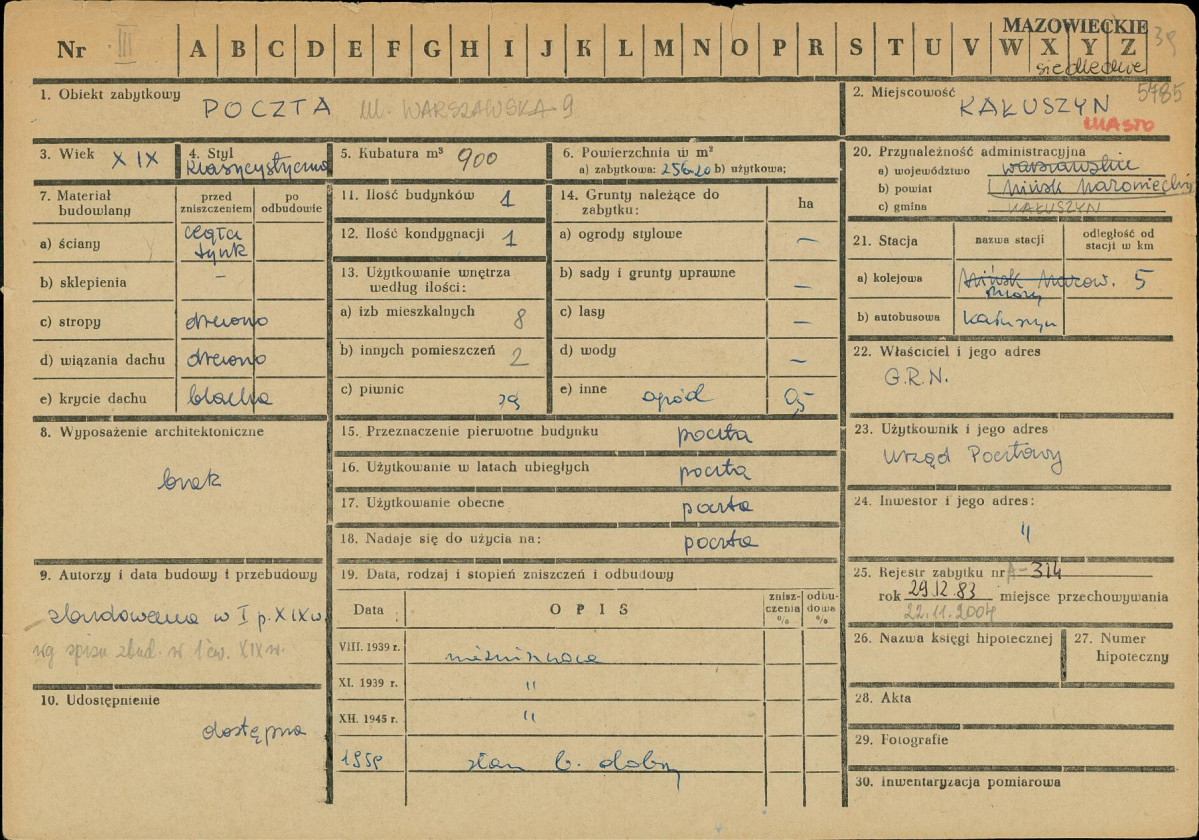 MAZOWIECKIE 39
Nr III A B C D E F G H I J K L M N O P R S T U V W X Y Z
siedleckie
1. Obiekt zabytkowy POCZTA ul. WARSZAWSKA 9
2. Miejscowość KAŁUSZYN 5785
MIASTO
3. Wiek XIX
4. Styl klasycystyczna
5. Kubatura m³ 900
6. Powierzchnia w m²
a) zabytkowa: 256.20 b) użytkowa;
7. Materiał budowlany
przed zniszczeniem
po odbudowie
a) ściany cegła tynk
b) sklepienia –
c) stropy drewno
d) wiązania dachu drewno
e) krycie dachu blacha
8. Wyposażenie architektoniczne
brak
9. Autorzy i data budowy i przebudowy
zbudowana w I p. XIX w.
wg spisu zbud. w 1 ćw. XIX w.
10. Udostępnienie
dostępna
11. Ilość budynków 1
12. Ilość kondygnacji 1
13. Użytkowanie wnętrza
według ilości:
a) izb mieszkalnych 8
b) innych pomieszczeń 2
c) piwnic
14. Grunty należące do
zabytku: ha
a) ogrody stylowe –
b) sady i grunty uprawne –
c) lasy –
d) wody –
e) inne ogród 0,5
15. Przeznaczenie pierwotne budynku poczta
16. Użytkowanie w latach ubiegłych poczta
17. Użytkowanie obecne poczta
18. Nadaje się do użycia na: poczta
19. Data, rodzaj i stopień zniszczeń i odbudowy
Data O P I S znisz- czenia % odbu- dowa %
VIII. 1939 r. niezniszczona
XI. 1939 r. "
XII. 1945 r. "
1959 stan b. dobry
20. Przynależność administracyjna
a) województwo warszawskie
b) powiat Mińsk Mazowiecki
c) gmina KAŁUSZYN
21. Stacja nazwa stacji odległość od
stacji w km
a) kolejowa Mińsk Mazow. 5
Mrozy
b) autobusowa Kałuszyn
22. Właściciel i jego adres
G.R.N.
23. Użytkownik i jego adres
Urząd Pocztowy
24. Inwestor i jego adres:
"
25. Rejestr zabytku nr A-314
rok 29.12.83 miejsce przechowywania
22.11.2004
26. Nazwa księgi hipotecznej
27. Numer
hipoteczny
28. Akta
29. Fotografie
30. Inwentaryzacja pomiarowa